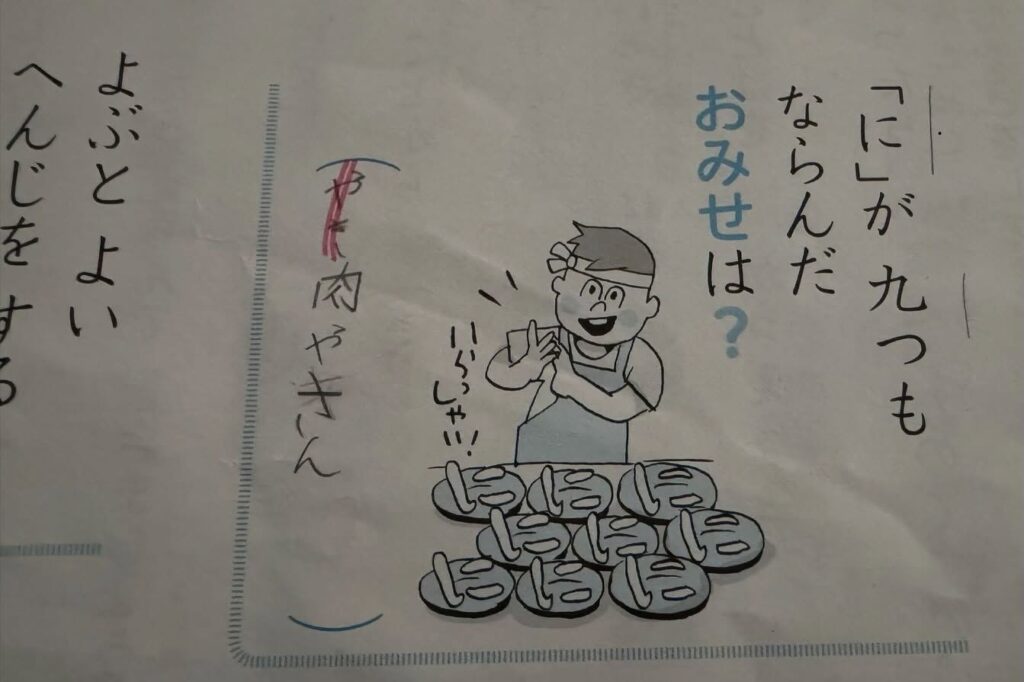 「に」が 九つも
ならんだ
おみせは?
いらっ
しゃい!
に に に
に に に
に に に
肉やさん
よぶと よい
へんじを する